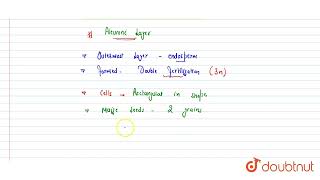 # Aleurone Layer
→ Outermost layer - endosperm
→ Formed - Double fertilization (3n)
→ Cells → Rectangular in shape
→ Maize seeds - 2 grains
doubtnut